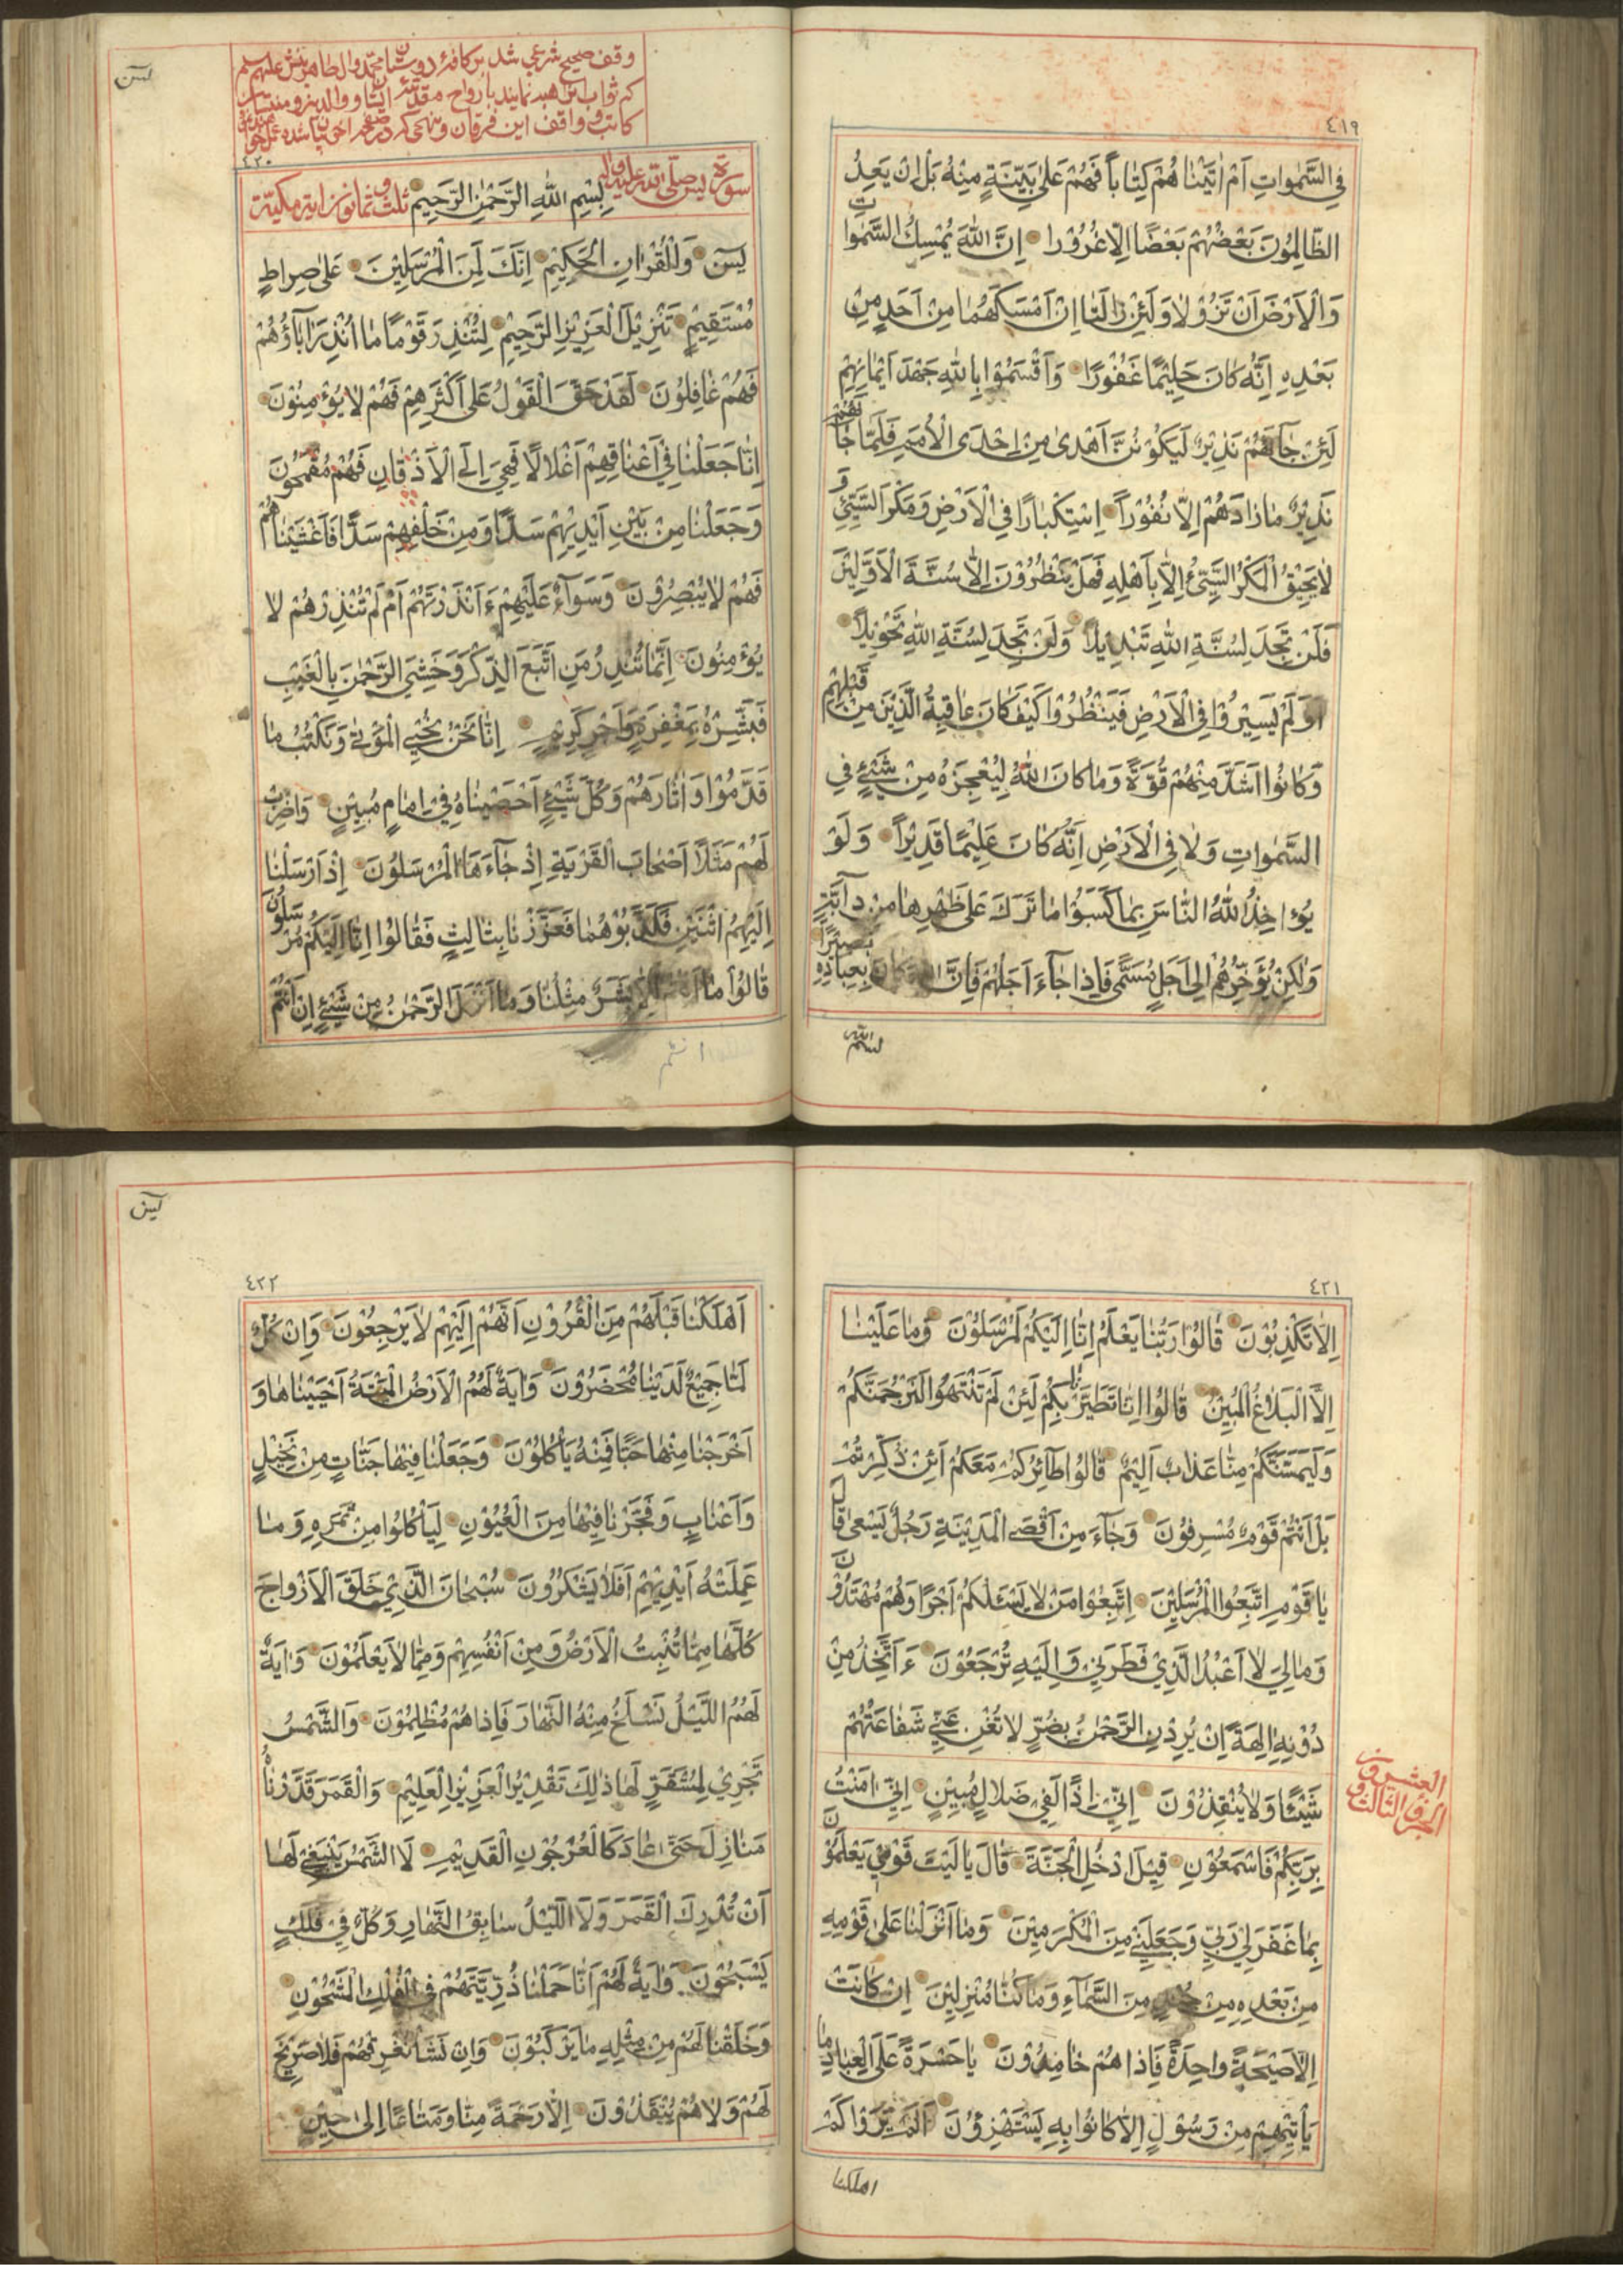 ٤١٩
فِي السَّمٰواتِ اَمْ اٰتَيْنٰا هُمْ كِتٰاباً فَهُمْ عَلىٰ بَيِّنَةٍ مِنْهُ بَلْ اِنْ يَعِدُ
الظّٰالِمُونَ بَعْضُهُمْ بَعْضًا اِلّٰا غُرُوْرا اِنَّ اللّٰهَ يُمْسِكُ السَّمٰواتِ
وَالْاَرْضَ اَنْ تَزُوْلٰا وَلَئِنْ زٰالَتٰا اِنْ اَمْسَكَهُمٰا مِنْ اَحَدٍ مِنْ
بَعْدِهِ اِنَّهُ كٰانَ حَلِيْمًا غَفُوْرًا وَاَقْسَمُوْا بِاللّٰهِ جَهْدَ اَيْمٰانِهِمْ
لَئِنْ جٰآءَهُمْ نَذِيْرٌ لَيَكُوْنُنَّ اَهْدىٰ مِنْ اِحْدَى الْاُمَمِ فَلَمّٰا جٰاءَهُمْ
نَذِيْرٌ مٰا زٰادَهُمْ اِلّٰا نُفُوْراً اِسْتِكْبٰارًا فِي الْاَرْضِ وَمَكْرَ السَّيِّئِ وَ
لٰا يَحِيْقُ الْمَكْرُ السَّيِّئُ اِلّٰا بِاَهْلِهِ فَهَلْ يَنْظُرُوْنَ اِلّٰا سُنَّةَ الْاَوَّلِيْنَ
فَلَنْ تَجِدَ لِسُنَّةِ اللّٰهِ تَبْدِيْلاً وَلَنْ تَجِدَ لِسُنَّةِ اللّٰهِ تَحْوِيْلاً
اَوَلَمْ يَسِيْرُوْا فِي الْاَرْضِ فَيَنْظُرُوْا كَيْفَ كٰانَ عٰاقِبَةُ الَّذِيْنَ مِنْ قَبْلِهِمْ
وَكٰانُوا اَشَدَّ مِنْهُمْ قُوَّةً وَمٰا كٰانَ اللّٰهُ لِيُعْجِزَهُ مِنْ شَيْئٍ فِي
السَّمٰواتِ وَلٰا فِي الْاَرْضِ اِنَّهُ كٰانَ عَلِيْمًا قَدِيْراً وَلَوْ
يُؤٰاخِذُ اللّٰهُ النّٰاسَ بِمٰا كَسَبُوْا مٰا تَرَكَ عَلىٰ ظَهْرِهٰا مِنْ دآبَّةٍ
وَلٰكِنْ يُؤَخِّرُهُمْ اِلىٰ اَجَلٍ مُسَمًّى فَاِذٰا جٰاءَ اَجَلُهُمْ فَاِنَّ اللّٰهَ كٰانَ بِعِبٰادِهِ بَصِيْرًا
بسم الله
يس
وقف صحيح شرعي شد بر كافهٔ دوستان محمد وال طاهرينش عليهم سلم
٤٢٠
سورة يس صلى الله عليه واله بِسْمِ اللّٰهِ الرَّحْمٰنِ الرَّحِيْمِ ثلث وثمانون اية مكية
يٰسۤ وَالْقُرْاٰنِ الْحَكِيْمِ اِنَّكَ لَمِنَ الْمُرْسَلِيْنَ عَلىٰ صِراطٍ
مُسْتَقِيْمٍ تَنْزِيْلَ الْعَزِيْزِ الرَّحِيْمِ لِتُنْذِرَ قَوْمًا مٰا اُنْذِرَ اٰبٰاؤُهُمْ
فَهُمْ غٰافِلُوْنَ لَقَدْ حَقَّ الْقَوْلُ عَلىٰ اَكْثَرِهِمْ فَهُمْ لٰا يُؤْمِنُوْنَ
اِنّٰا جَعَلْنٰا فِيْ اَعْنٰاقِهِمْ اَغْلٰالًا فَهِيَ اِلَى الْاَذْقٰانِ فَهُمْ مُقْمَحُوْنَ
وَجَعَلْنٰا مِنْ بَيْنِ اَيْدِيْهِمْ سَدًّا وَمِنْ خَلْفِهِمْ سَدًّا فَاَغْشَيْنٰاهُمْ
فَهُمْ لٰا يُبْصِرُوْنَ وَسَوآءٌ عَلَيْهِمْ ءَاَنْذَرْتَهُمْ اَمْ لَمْ تُنْذِرْهُمْ لٰا
يُؤْمِنُونَ اِنَّمٰا تُنْذِرُ مَنِ اتَّبَعَ الذِّكْرَ وَخَشِيَ الرَّحْمٰنَ بِالْغَيْبِ
فَبَشِّرْهُ بِمَغْفِرَةٍ وَاَجْرٍ كَرِيْمٍ اِنّٰا نَحْنُ نُحْيِي الْمَوْتىٰ وَنَكْتُبُ مٰا
قَدَّمُوْا وَاٰثٰارَهُمْ وَكُلَّ شَيْئٍ اَحْصَيْنٰاهُ فِيْ اِمٰامٍ مُبِيْنٍ وَاضْرِبْ
لَهُمْ مَثَلًا اَصْحٰابَ الْقَرْيَةِ اِذْ جٰآءَهَا الْمُرْسَلُوْنَ اِذْ اَرْسَلْنٰا
اِلَيْهِمُ اثْنَيْنِ فَكَذَّبُوْهُمٰا فَعَزَّزْنٰا بِثٰالِثٍ فَقٰالُوْا اِنّٰا اِلَيْكُمْ مُرْسَلُوْنَ
قٰالُوْا مٰا اِلّٰا بَشَرٌ مِثْلُنٰا وَمٰا اَنْزَلَ الرَّحْمٰنُ مِنْ شَيْئٍ اِنْ اَنْتُمْ
٤٢١
اِلّٰا تَكْذِبُوْنَ قٰالُوْا رَبُّنٰا يَعْلَمُ اِنّٰا اِلَيْكُمْ لَمُرْسَلُوْنَ وَمٰا عَلَيْنٰا
اِلَّا الْبَلٰاغُ الْمُبِيْنُ قٰالُوْا اِنّٰا تَطَيَّرْنٰا بِكُمْ لَئِنْ لَمْ تَنْتَهُوْا لَنَرْجُمَنَّكُمْ
وَلَيَمَسَّنَّكُمْ مِنّٰا عَذٰابٌ اَلِيْمٌ قٰالُوْا طٰآئِرُكُمْ مَعَكُمْ اَئِنْ ذُكِّرْتُمْ
بَلْ اَنْتُمْ قَوْمٌ مُسْرِفُوْنَ وَجٰآءَ مِنْ اَقْصَى الْمَدِيْنَةِ رَجُلٌ يَسْعىٰ قٰالَ
يٰا قَوْمِ اتَّبِعُوا الْمُرْسَلِيْنَ اِتَّبِعُوْا مَنْ لٰا يَسْئَلُكُمْ اَجْرًا وَهُمْ مُهْتَدُوْنَ
وَمٰا لِيَ لٰا اَعْبُدُ الَّذِيْ فَطَرَنِيْ وَاِلَيْهِ تُرْجَعُوْنَ ءَاَتَّخِذُ مِنْ
دُوْنِهِ اٰلِهَةً اِنْ يُرِدْنِ الرَّحْمٰنُ بِضُرٍّ لٰا تُغْنِ عَنِّيْ شَفٰاعَتُهُمْ
شَيْئًا وَلٰا يُنْقِذُوْنَ اِنِّيْ اِذًا لَفِيْ ضَلٰالٍ مُبِيْنٍ اِنِّيْ اٰمَنْتُ
بِرَبِّكُمْ فَاسْمَعُوْنِ قِيْلَ ادْخُلِ الْجَنَّةَ قٰالَ يٰا لَيْتَ قَوْمِيْ يَعْلَمُوْنَ
بِمٰا غَفَرَ لِيْ رَبِّيْ وَجَعَلَنِيْ مِنَ الْمُكْرَمِيْنَ وَمٰا اَنْزَلْنٰا عَلىٰ قَوْمِهِ
مِنْ بَعْدِهِ مِنْ جُنْدٍ مِنَ السَّمٰآءِ وَمٰا كُنّٰا مُنْزِلِيْنَ اِنْ كٰانَتْ
اِلّٰا صَيْحَةً واحِدَةً فَاِذٰا هُمْ خٰامِدُوْنَ يٰا حَسْرَةً عَلَى الْعِبٰادِ مٰا
يَأْتِيْهِمْ مِنْ رَسُوْلٍ اِلّٰا كٰانُوْا بِهِ يَسْتَهْزِؤُنَ اَلَمْ يَرَوْا كَمْ
اهلكنا
العشرون
الجزء الثالث و
يس
٤٢٢
اَهْلَكْنٰا قَبْلَهُمْ مِنَ الْقُرُوْنِ اَنَّهُمْ اِلَيْهِمْ لٰا يَرْجِعُوْنَ وَاِنْ كُلٌّ
لَمّٰا جَمِيْعٌ لَدَيْنٰا مُحْضَرُوْنَ وَاٰيَةٌ لَهُمُ الْاَرْضُ الْمَيْتَةُ اَحْيَيْنٰاهٰا وَ
اَخْرَجْنٰا مِنْهٰا حَبًّا فَمِنْهُ يَأْكُلُوْنَ وَجَعَلْنٰا فِيْهٰا جَنّٰاتٍ مِنْ نَخِيْلٍ
وَاَعْنٰابٍ وَفَجَّرْنٰا فِيْهٰا مِنَ الْعُيُوْنِ لِيَأْكُلُوْا مِنْ ثَمَرِهِ وَمٰا
عَمِلَتْهُ اَيْدِيْهِمْ اَفَلٰا يَشْكُرُوْنَ سُبْحٰانَ الَّذِيْ خَلَقَ الْاَزْواجَ
كُلَّهٰا مِمّٰا تُنْبِتُ الْاَرْضُ وَمِنْ اَنْفُسِهِمْ وَمِمّٰا لٰا يَعْلَمُوْنَ وَاٰيَةٌ
لَهُمُ اللَّيْلُ نَسْلَخُ مِنْهُ النَّهٰارَ فَاِذٰا هُمْ مُظْلِمُوْنَ وَالشَّمْسُ
تَجْرِيْ لِمُسْتَقَرٍّ لَهٰا ذٰلِكَ تَقْدِيْرُ الْعَزِيْزِ الْعَلِيْمِ وَالْقَمَرَ قَدَّرْنٰاهُ
مَنٰازِلَ حَتّىٰ عٰادَ كَالْعُرْجُوْنِ الْقَدِيْمِ لَا الشَّمْسُ يَنْبَغِيْ لَهٰا
اَنْ تُدْرِكَ الْقَمَرَ وَلَا اللَّيْلُ سٰابِقُ النَّهٰارِ وَكُلٌّ فِيْ فَلَكٍ
يَسْبَحُوْنَ وَاٰيَةٌ لَهُمْ اَنّٰا حَمَلْنٰا ذُرِّيَّتَهُمْ فِي الْفُلْكِ الْمَشْحُوْنِ
وَخَلَقْنٰا لَهُمْ مِنْ مِثْلِهِ مٰا يَرْكَبُوْنَ وَاِنْ نَشَأْ نُغْرِقْهُمْ فَلٰا صَرِيْخَ
لَهُمْ وَلٰا هُمْ يُنْقَذُوْنَ اِلّٰا رَحْمَةً مِنّٰا وَمَتٰاعًا اِلىٰ حِيْنٍ